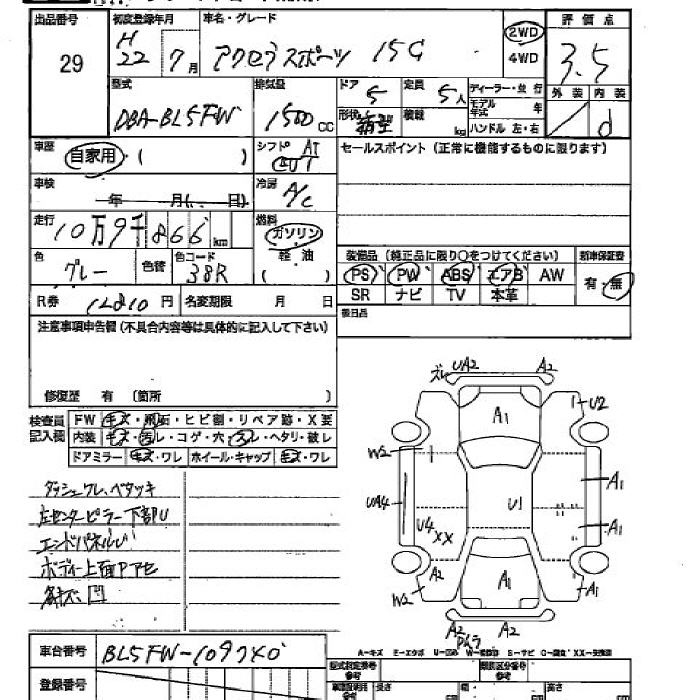 出品番号 初度登録年月 車名・グレード 評価点
29 H22 7月 アクセラスポーツ 15G 2WD 4WD 3.5
型式 排気量 ドア 定員 ディーラー・並行 外装 内装
DBA-BL5FW 1500cc 5 5人 モデル年式 年 d
形状 箱型 積載 kg ハンドル 左・右
車歴 自家用・( ) シフト AT セールスポイント(正常に機能するものに限ります)
車検 年 月(. 日) 冷房 A/C
走行 10万9千866km 燃料 ガソリン 軽油 ( )
装備品(純正品に限り〇をつけてください) 新車保証書
色 グレー 色替 色コード 38R PS PW ABS エアB AW 有・無
SR ナビ TV 本革
R券 12810円 名変期限 月 日
後日品
注意事項申告欄(不具合内容等は具体的に記入して下さい)
修復歴 有 〔箇所 〕
検査員記入欄 FW キズ・飛石・ヒビ割・リペア跡・X要
内装 キズ・汚レ・コゲ・穴・スレ・ヘタリ・破レ
ドアミラー キズ・ワレ ホイール・キャップ キズ・ワレ
ズレ UA2 A2
A1 1 U2
W2
UA4 A1
U1
U4 XX A1
A2 A1 A1
W2
A2 A2
ダッシュワレ、ベタツキ
左センターピラー下部U
エンドパネルU
ボディー上面ヤケ
車台番号 BL5FW-109740
A-キズ E-エクボ U-凹み W-補修跡 S-サビ C-腐食 XX-交換済
登録番号
型式指定番号 参考 類別区分番号 参考
長さ 幅 高さ